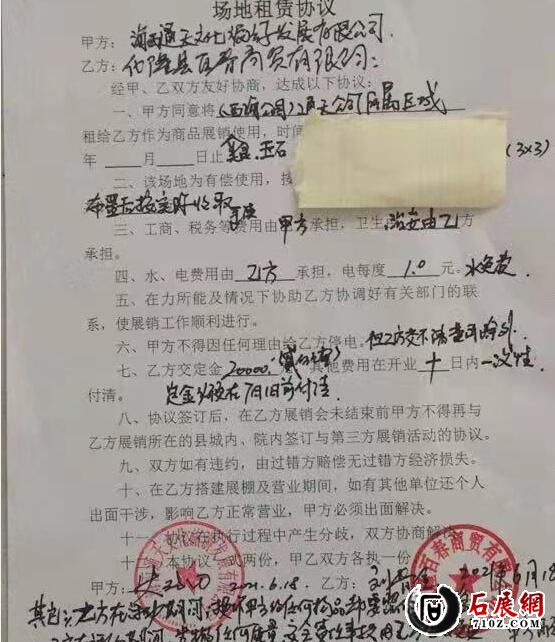 场地租赁协议
甲方：海西通天文化旅游发展有限公司.
乙方：化隆县百普商贸有限公司：
经甲、乙双方友好协商，达成以下协议：
一、甲方同意将(西海公园)通天公司所属区域
租给乙方作为商品展销使用，时间
年 月 日止 玉石 (3×3)
二、该场地为有偿使用，按
布置后按实际收取
三、工商、税务等费用由甲方承担，卫生 治安由乙方
承担。
四、水、电费用由乙方承担，电每度1.0元。水免费.
五、在力所能及情况下协助乙方协调好有关部门的联
系，使展销工作顺利进行。
六、甲方不得因任何理由给乙方停电。但乙方交不清
七、乙方交定金20000. 其他费用在开业十日内一次性
付清。 定金必须在7月1日前付清.
八、协议签订后，在乙方展销会未结束前甲方不得再与
乙方展销所在的县城内、院内签订与第三方展销活动的协议。
九、双方如有违约，由过错方赔偿无过错方经济损失。
十、在乙方搭建展棚及营业期间，如有其他单位还个人
出面干涉，影响乙方正常营业，甲方必须出面解决。
十一、协议在执行过程中产生分歧，双方协商解决
十 本协议一式两份，甲乙双方各执一份
甲方： 2021.6.18. 乙方： 2021年6月18
其它：乙方在 期间，
石展网
71ZW.COM